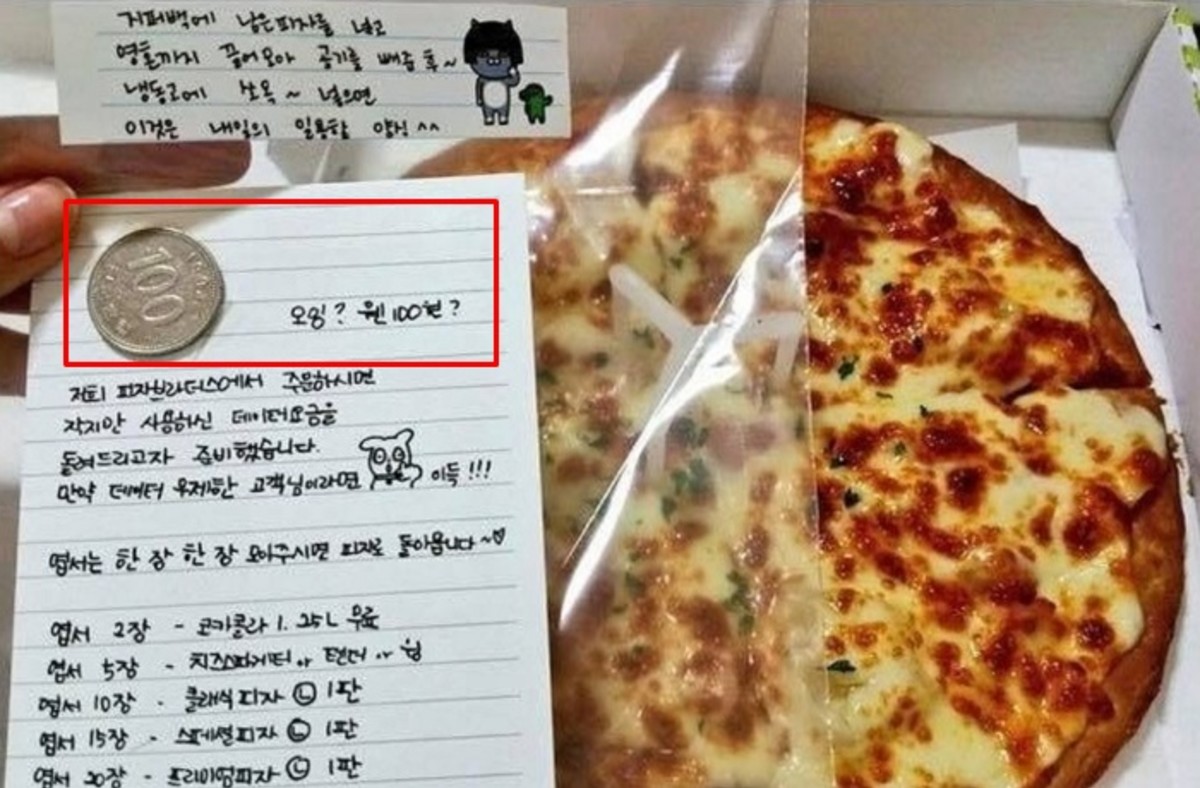 지퍼백에 남은피자를 넣고
영혼까지 끌어모아 공기를 빼줌 후~
냉동고에 쏘옥~ 넣으면
이것은 내일의 일용할 양식^^
100
오잉? 웬 100원?
저희 피자브라더스에서 주문하시면
작지만 사용하신 데이터요금을
돌려드리고자 준비했습니다.
만약 데이터 무제한 고객님이라면 이득!!!
엽서는 한 장 한 장 모아주시면 피자로 돌아옵니다~♡
엽서 2장 - 코카콜라 1.25L 무료
엽서 5장 - 치즈스파게티 or 텐더 or 윙
엽서 10장 - 클래식피자 Ⓛ 1판
엽서 15장 - 스페셜피자 Ⓛ 1판
엽서 20장 - 프리미엄피자 Ⓛ 1판